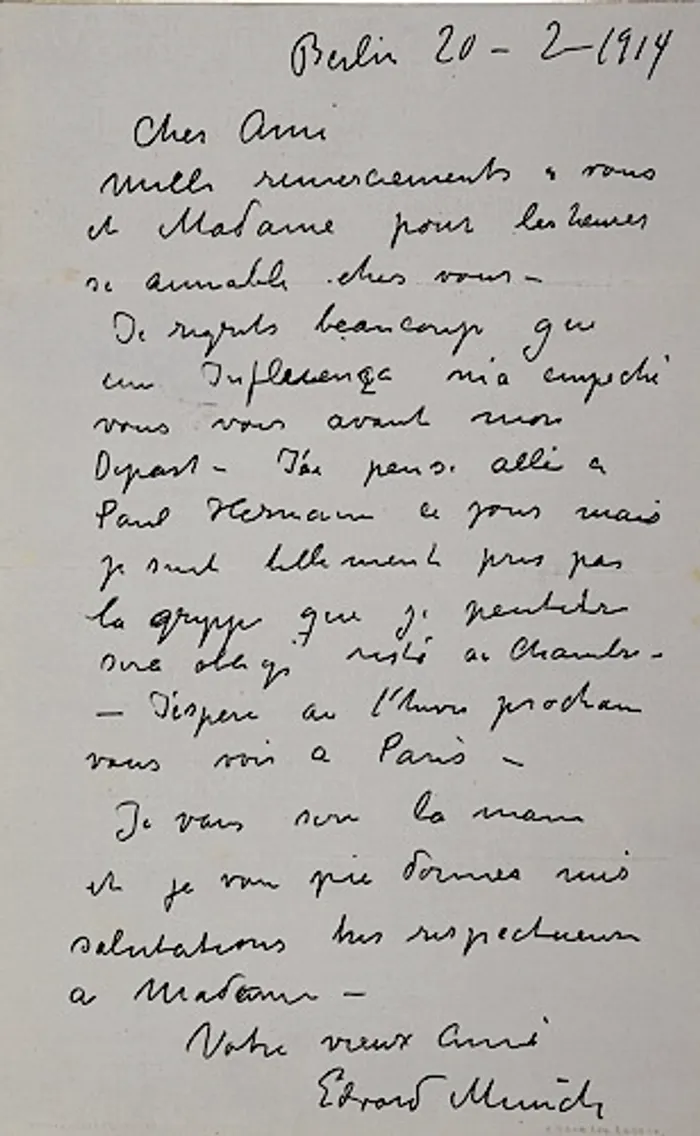 Berlin 20 - 2 - 1914
Cher Ami
Mille remerciements a vous
et Madame pour les heures
si aimable chez vous -
Je regrets beaucoup que
un Influenza m'a empeché
vous voir avant mon
Depart - J'ai pensé allé a
Paul Hermann ce jour mais
je suit tellement pris par
la gryppe que je peutetre
sera obligé resté au Chambre -
- J'espere au l'hiver prochain
vous voir a Paris -
Je vous serre la main
et je vous prie donner mes
salutations tres respectueux
a Madame -
Votre vieux Ami
Edvard Munch